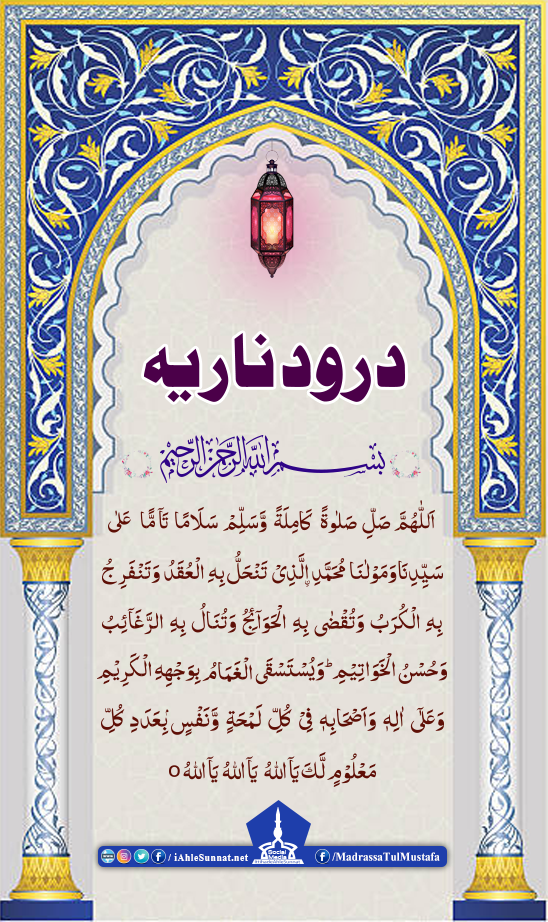 درود ناریہ
بِسْمِ اللهِ الرَّحْمٰنِ الرَّحِيْمِ
اَللّٰهُمَّ صَلِّ صَلٰوةً كَامِلَةً وَّسَلِّمْ سَلَامًا تَآمًّا عَلٰى
سَيِّدِنَا وَمَوْلٰنَا مُحَمَّدِ ۨالَّذِىْ تَنْحَلُّ بِهِ الْعُقَدُ وَتَنْفَرِجُ
بِهِ الْكُرَبُ وَتُقْضٰى بِهِ الْحَوَآئِجُ وَتُنَالُ بِهِ الرَّغَآئِبُ
وَحُسْنُ الْخَوَاتِيْمِ ؕ وَيُسْتَسْقَى الْغَمَامُ بِوَجْهِهِ الْكَرِيْمِ
وَعَلٰٓى اٰلِهٖ وَاَصْحَابِهٖ فِىْ كُلِّ لَمْحَةٍ وَّنَفَسٍۭ بِعَدَدِ كُلِّ
مَعْلُوْمٍ لَّكَ يَآ اَللهُ يَآ اَللهُ يَآ اَللهُ ο
Social Media
/ iAhleSunnat.net
/MadrassaTulMustafa